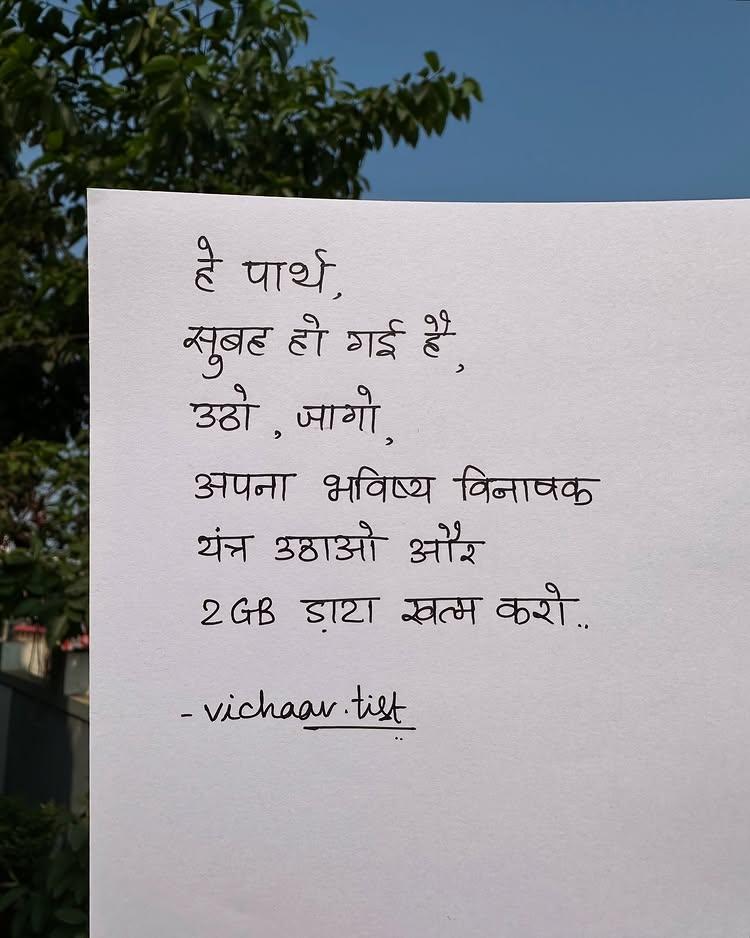 हे पार्थ,
सुबह हो गई है,
उठो, जागो,
अपना भविष्य विनाषक
यंत्र उठाओ और
2GB ड़ाटा खत्म करो..
- vichaar.tist